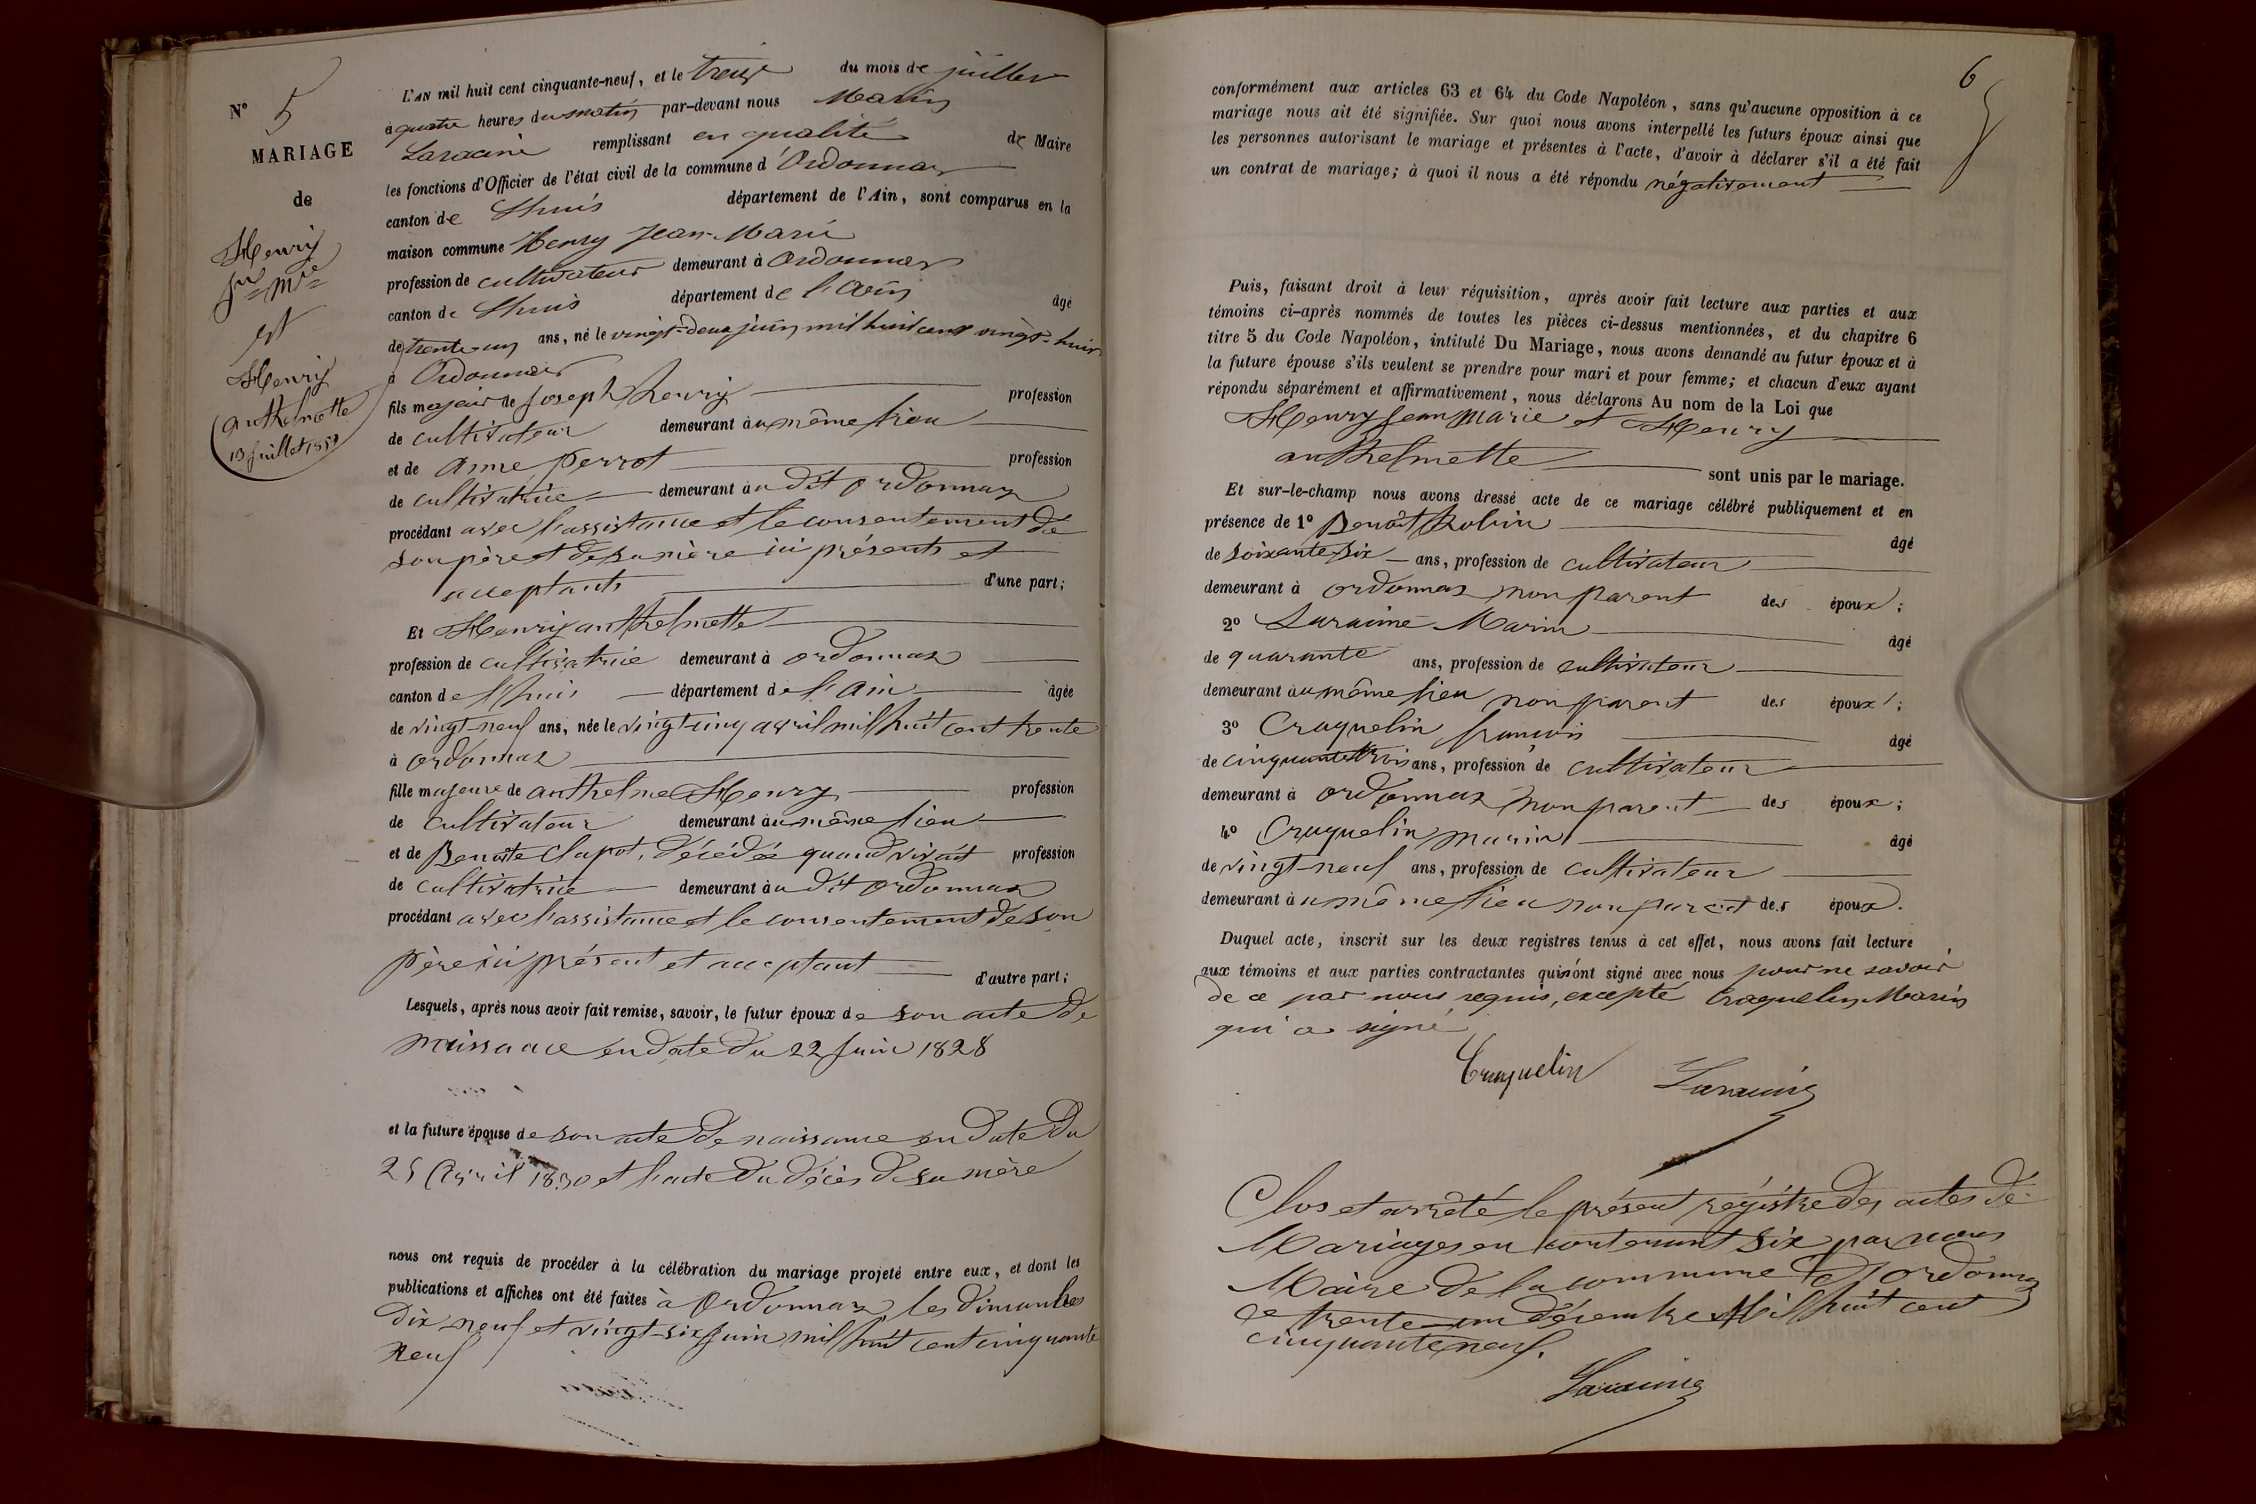 N° 5
MARIAGE
de
Henry
Jn= Mie=
et
Henry
anthelmette
13 juillet 1859
L'AN mil huit cent cinquante-neuf, et le treize du mois de juillet
à quatre heures du matin par-devant nous Marin
Laracine remplissant en qualité de Maire
les fonctions d'Officier de l'état civil de la commune d'Ordonnaz
canton de Lhuis département de l'Ain, sont comparus en la
maison commune Henry Jean-Marie
profession de cultivateur demeurant à Ordonnaz
canton de Lhuis département de l'Ain âgé
de trente un ans, né le vingt-deux juin mil huit cent vingt-huit
à Ordonnaz
fils majeur de Joseph henry profession
de cultivateur demeurant au même lieu
et de anne perrot profession
de cultivatrice demeurant au dit ordonnaz
procédant avec l'assistance et le consentement de
son père et de sa mère ici présents et
acceptants d'une part;
Et Henry anthelmette
profession de cultivatrice demeurant à ordonnaz
canton de l'huis département de l'ain âgée
de vingt-neuf ans, née le vingt cinq avril mil huit cent trente
à ordonnaz
fille majeure de anthelme Henry profession
de cultivateur demeurant au même lieu
et de Benoite Clapot, décédée quand vivait profession
de cultivatrice demeurant au dit ordonnaz
procédant avec l'assistance et le consentement de son
père ici présent et acceptant d'autre part;
Lesquels, après nous avoir fait remise, savoir, le futur époux de son acte de
naissance en date du 22 Juin 1828
et la future épouse de son acte de naissance en date du
25 Avril 1830 et l'acte du décès de sa mère
nous ont requis de procéder à la célébration du mariage projeté entre eux, et dont les
publications et affiches ont été faites à Ordonnaz les dimanches
dix neuf et vingt-six juin mil huit cent cinquante
neuf
6
conformément aux articles 63 et 64 du Code Napoléon, sans qu'aucune opposition à ce
mariage nous ait été signifiée. Sur quoi nous avons interpellé les futurs époux ainsi que
les personnes autorisant le mariage et présentes à l'acte, d'avoir à déclarer s'il a été fait
un contrat de mariage; à quoi il nous a été répondu négativement
Puis, faisant droit à leur réquisition, après avoir fait lecture aux parties et aux
témoins ci-après nommés de toutes les pièces ci-dessus mentionnées, et du chapitre 6
titre 5 du Code Napoléon, intitulé Du Mariage, nous avons demandé au futur époux et à
la future épouse s'ils veulent se prendre pour mari et pour femme; et chacun d'eux ayant
répondu séparément et affirmativement, nous déclarons Au nom de la Loi que
Henry Jean Marie et Henry
anthelmette sont unis par le mariage.
Et sur-le-champ nous avons dressé acte de ce mariage célébré publiquement et en
présence de 1° Benoît Robin âgé
de soixante six ans, profession de cultivateur
demeurant à ordonnaz non parent des époux;
2° Laracine Marin âgé
de quarante ans, profession de cultivateur
demeurant au même lieu non parent des époux;
3° Craquelin françois âgé
de cinquante trois ans, profession de cultivateur
demeurant à ordonnaz non parent des époux;
4° Craquelin marin âgé
de vingt-neuf ans, profession de cultivateur
demeurant au même lieu non parent des époux.
Duquel acte, inscrit sur les deux registres tenus à cet effet, nous avons fait lecture
aux témoins et aux parties contractantes qui n'ont signé avec nous pour ne savoir
de ce par nous requis, excepté Craquelin Marin
qui a signé
Craquelin Laracine
Clos et arrêté le présent régistre des actes de
Mariages en contenant six par nous
Maire de la commune d'ordonnaz
le trente-un décembre Mil huit cent
cinquante neuf.
Laracine